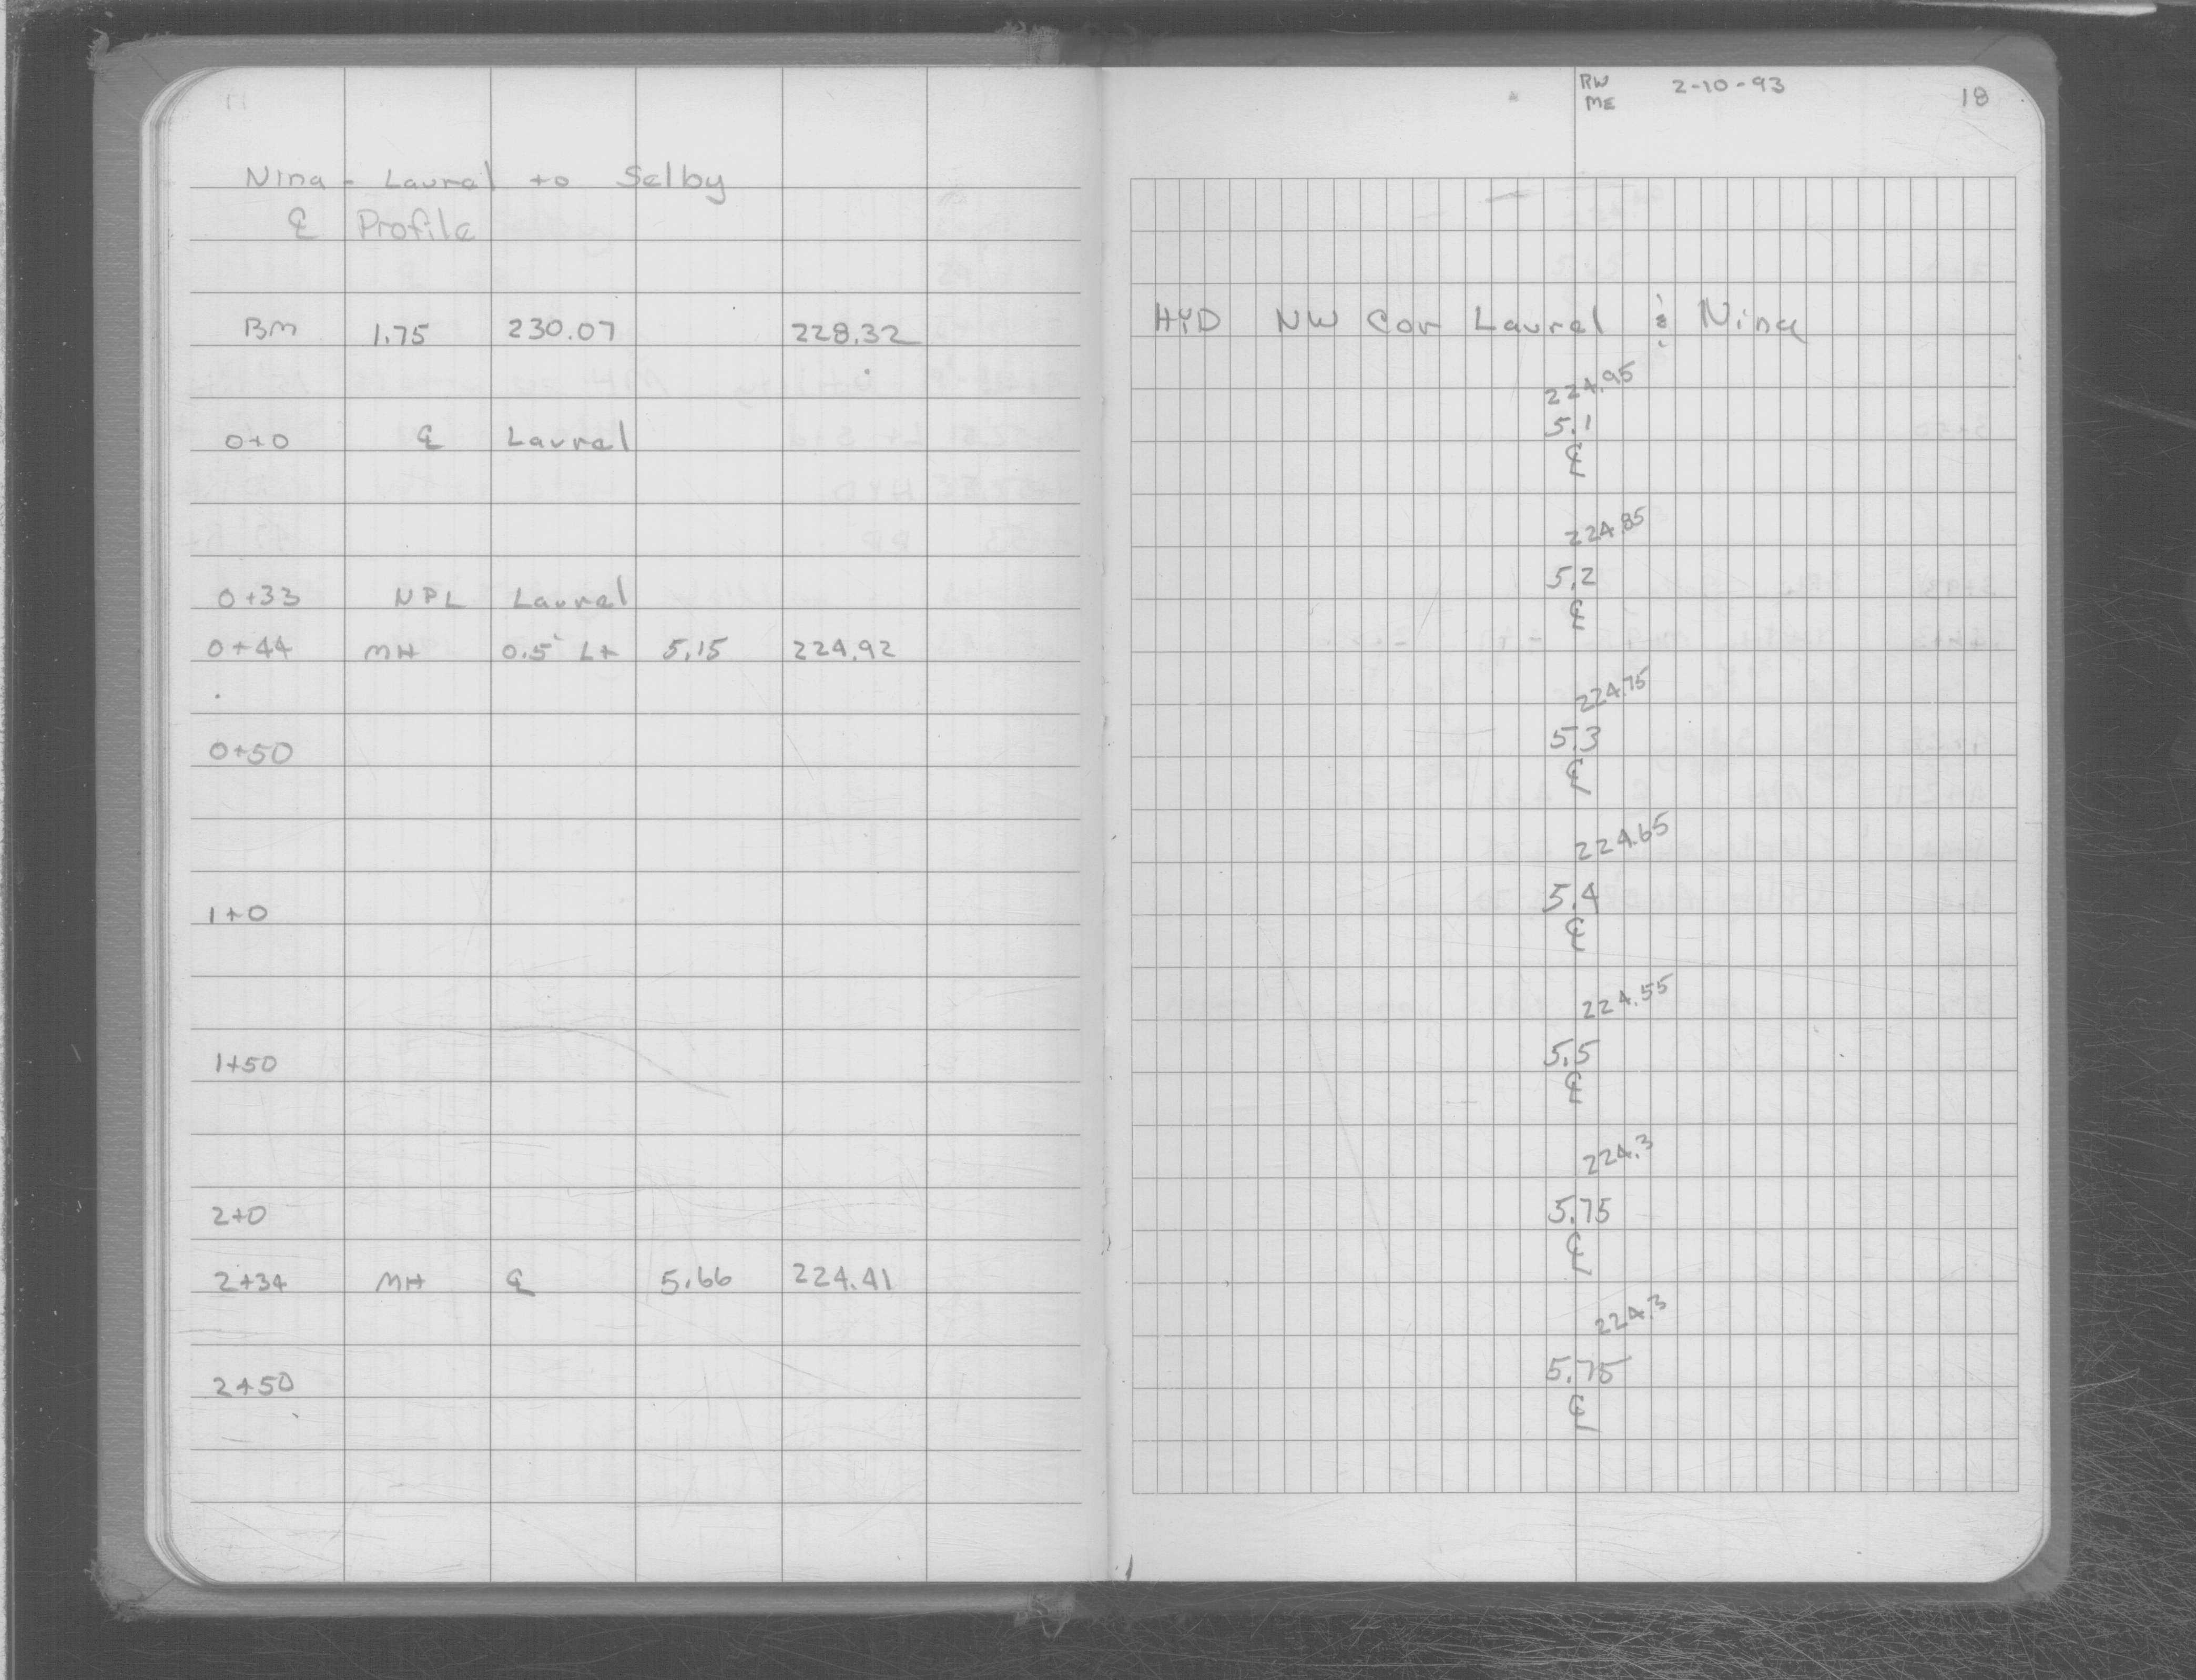 Nina - Laurel to Selby
℄ Profile
BM 1.75 230.07 228.32
0+0 ℄ Laurel
0+33 NPL Laurel
0+44 MH 0.5' Lt 5.15 224.92
0+50
1+0
1+50
2+0
2+34 MH ℄ 5.66 224.41
2+50
RW 2-10-93 18
ME
HYD NW Cor Laurel & Nina
224.95
5.1
℄
224.85
5.2
℄
224.75
5.3
℄
224.65
5.4
℄
224.55
5.5
℄
224.3
5.75
℄
224.3
5.75
℄